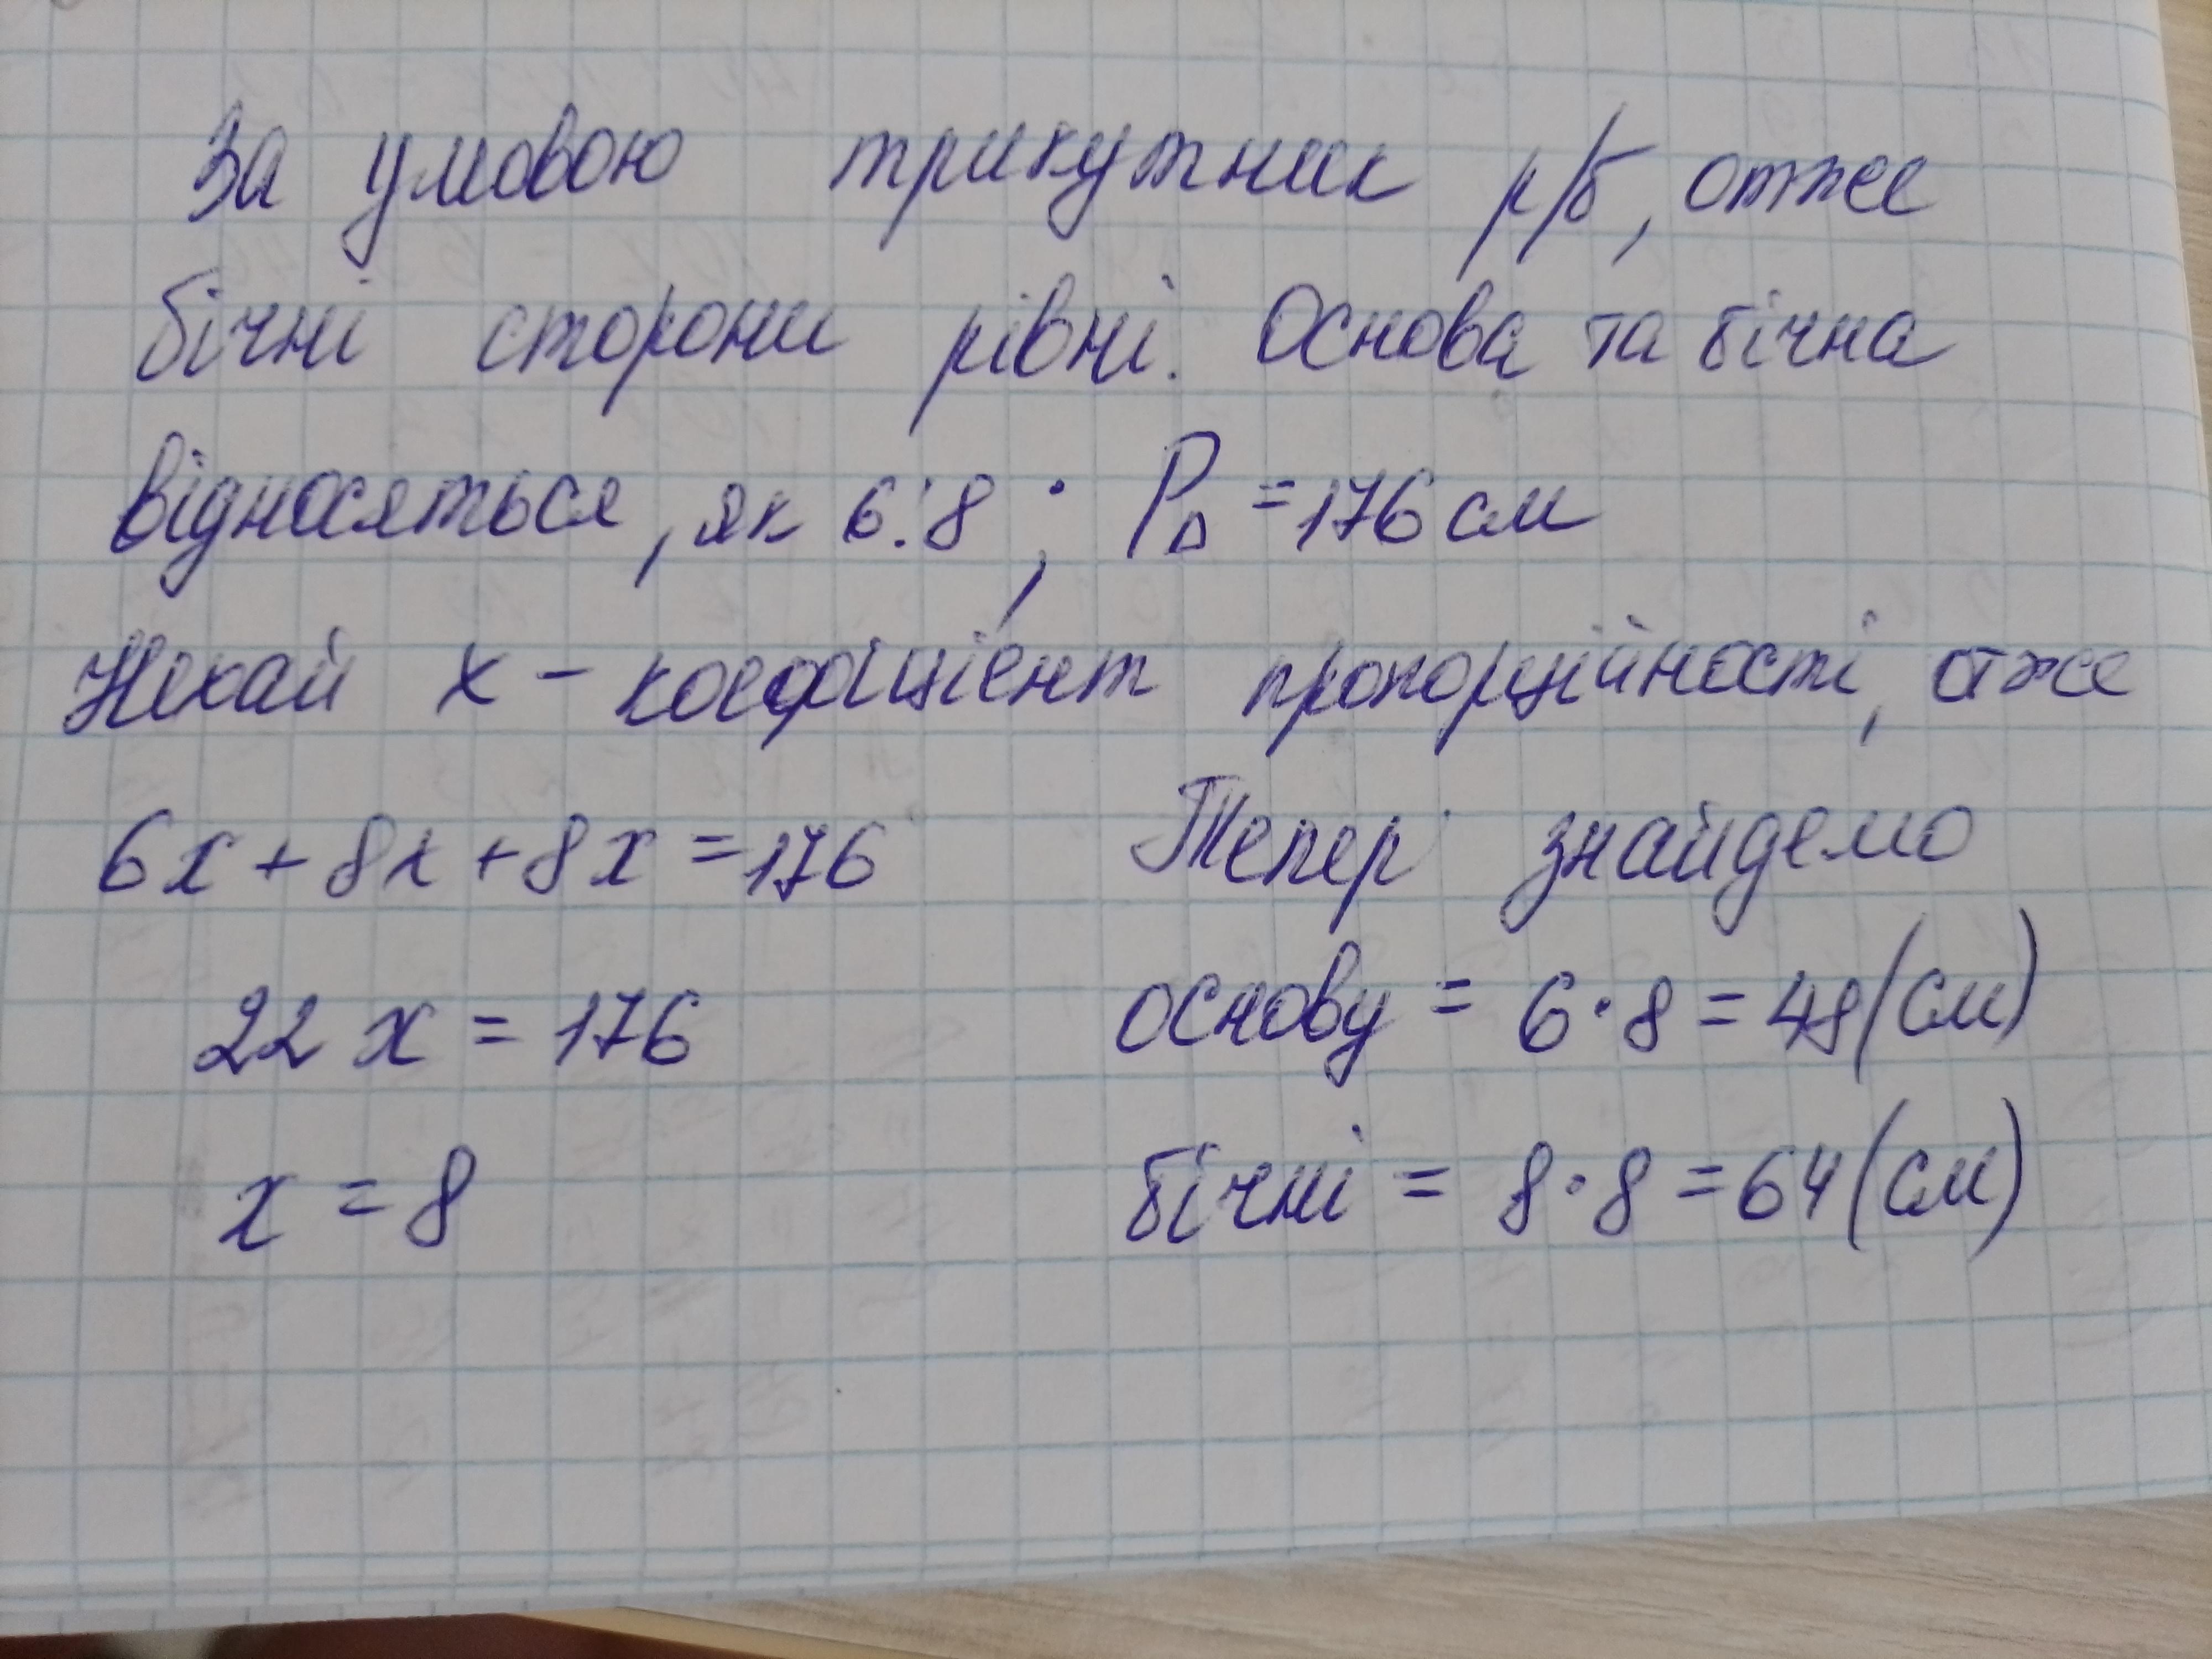 За умовою трикутник р/б, отже
бічні сторони рівні. Основа та бічна
відносяться, як 6:8; P∆ = 176 см
Нехай x - коефіцієнт пропорційності, отже
6x + 8x + 8x = 176
22 x = 176
x = 8
Тепер знайдемо
основу = 6·8 = 48 (см)
бічні = 8·8 = 64 (см)